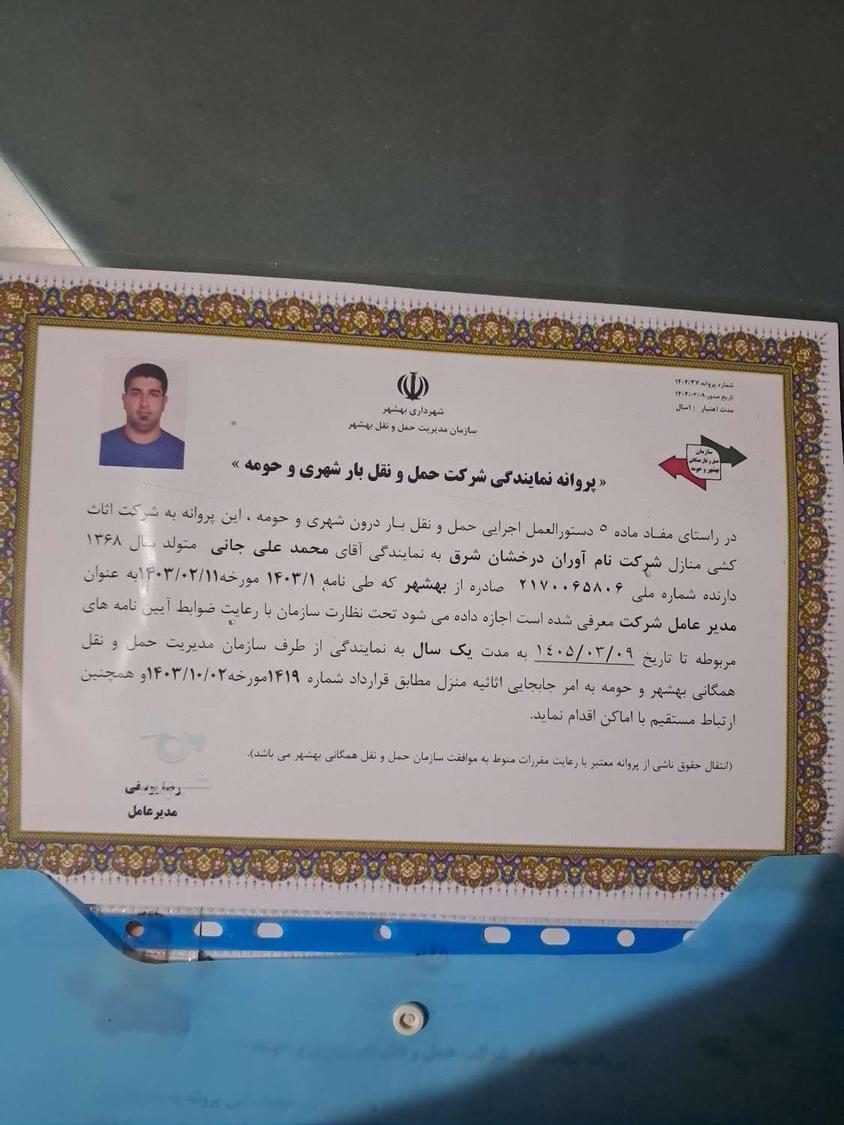 شهرداری بهشهر
سازمان مدیریت حمل و نقل بهشهر
شماره پروانه: ۱۴۰۴/۳۷
تاریخ صدور: ۱۴۰۴/۰۳/۰۹
مدت اعتبار : ۱سال
سازمان
حمل و نقل همگانی
بهشهر و حومه
« پروانه نمایندگی شرکت حمل و نقل بار شهری و حومه »
در راستای مفاد ماده ۵ دستورالعمل اجرایی حمل و نقل بار درون شهری و حومه ، این پروانه به شرکت اثاث
کشی منازل شرکت نام آوران درخشان شرق به نمایندگی آقای محمد علی جانی متولد سال ۱۳۶۸
دارنده شماره ملی ۲۱۷۰۰۶۵۸۰۶ صادره از بهشهر که طی نامه ۱۴۰۳/۱ مورخه ۱۴۰۳/۰۲/۱۱به عنوان
مدیر عامل شرکت معرفی شده است اجازه داده می شود تحت نظارت سازمان با رعایت ضوابط آیین نامه های
مربوطه تا تاریخ ۱۴۰۵/۰۳/۰۹ به مدت یک سال به نمایندگی از طرف سازمان مدیریت حمل و نقل
همگانی بهشهر و حومه به امر جابجایی اثاثیه منزل مطابق قرارداد شماره ۱۴۱۹مورخه۱۴۰۳/۱۰/۰۲و همچنین
ارتباط مستقیم با اماکن اقدام نماید.
(انتقال حقوق ناشی از پروانه معتبر با رعایت مقررات منوط به موافقت سازمان حمل و نقل همگانی بهشهر می باشد).
رضا یوسفی
مدیرعامل